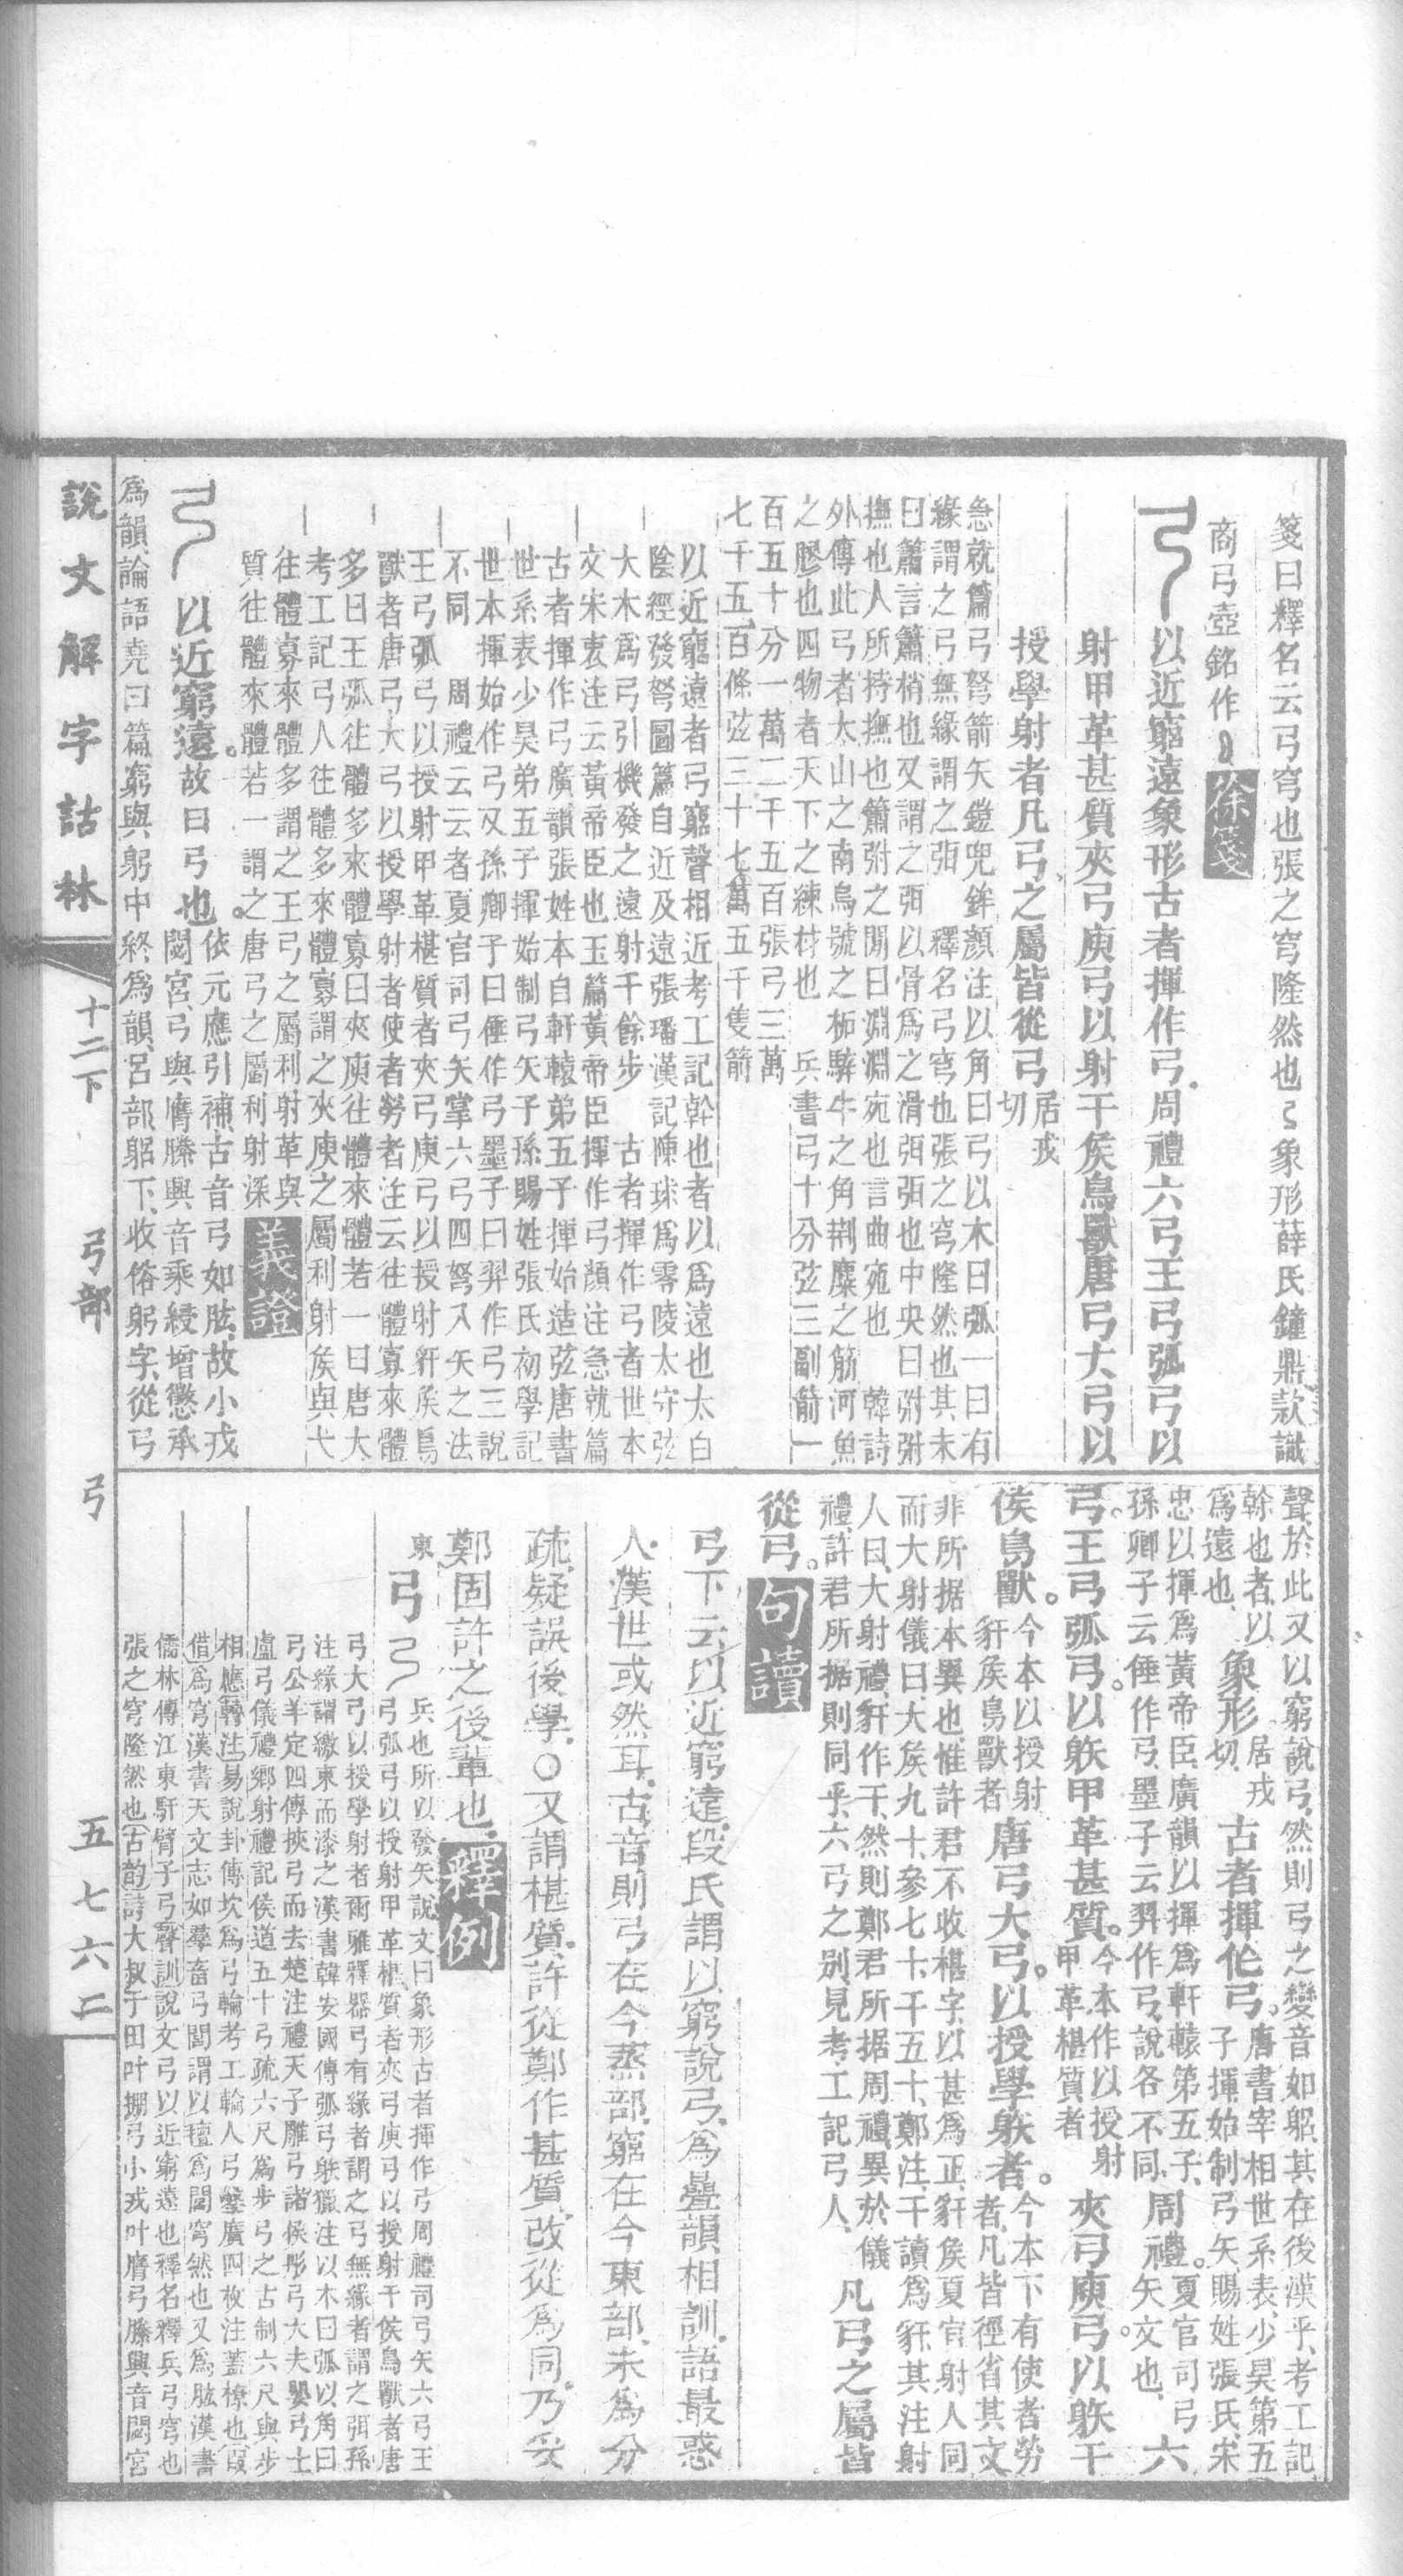 箋曰釋名云弓穹也張之穹隆然也弓象形薛氏鐘鼎款識
商弓壺銘作
徐箋
以近窮遠象形古者揮作弓周禮六弓王弓弧弓以
射甲革甚質夾弓庾弓以射干侯鳥獸唐弓大弓以
授學射者凡弓之屬皆從弓居戎切
急就篇弓弩箭矢鎧兜鉾顏注以角曰弓以木曰弧一曰有
緣謂之弓無緣謂之弭 釋名弓穹也張之穹隆然也其末
曰簫言簫梢也又謂之弭以骨為之滑弭弭也中央曰弣弣
撫也人所持撫也簫弣之間曰淵淵宛也言曲宛也 韓詩
外傳此弓者太山之南烏號之柘騂牛之角荆麋之筋河魚
之膠也四物者天下之練材也 兵書弓十分弦三副箭一
百五十分一萬二千五百張弓三萬
七千五百條弦三十七萬五千隻箭
以近窮遠者弓窮聲相近考工記幹也者以為遠也太白
陰經發弩圖篇自近及遠張璠漢記陳球為零陵太守弦
大木為弓引機發之遠射千餘步 古者揮作弓者世本
文宋衷注云黃帝臣也玉篇黃帝臣揮作弓顏注急就篇
古者揮作弓廣韻張姓本自軒轅弟五子揮始造弦唐書
世系表少昊弟五子揮始制弓矢子孫賜姓張氏初學記
世本揮始作弓又孫卿子曰倕作弓墨子曰羿作弓三說
不同 周禮云云者夏官司弓矢掌六弓四弩八矢之法
王弓弧弓以授射甲革椹質者夾弓庾弓以授射豻侯鳥
獸者唐弓大弓以授學射者使者勞者注云往體寡來體
多曰王弧往體多來體寡曰夾庾往體來體若一曰唐大
考工記弓人往體多來體寡謂之夾庾之屬利射侯與弋
往體寡來體多謂之王弓之屬利射革與
質往體來體若一謂之唐弓之屬利射深
義證
以近窮遠。故曰弓也。依元應引補古音弓如肱故小戎
閟宮弓與膺縢興音乘綅增懲承
為韻論語堯曰篇窮與躬中終為韻呂部躳下收俗躬字從弓
聲於此又以窮說弓然則弓之變音如躳其在後漢乎考工記
幹也者以為遠也象形居戎切古者揮作弓。唐書宰相世系表少昊第五
子揮始制弓矢賜姓張氏宋
忠以揮為黃帝臣廣韻以揮為軒轅第五子
孫卿子云倕作弓墨子云羿作弓說各不同周禮。夏官司弓
矢文也六
弓。王弓弧弓。以躲甲革甚質。今本作以授射
甲革椹質者夾弓庾弓。以躲干
侯鳥獸。今本以授射
豻侯鳥獸者唐弓大弓。以授學躲者。今本下有使者勞
者凡皆徑省其文
非所据本異也惟許君不收椹字以甚為正豻侯夏官射人同
而大射儀曰大侯九十參七十干五十鄭注干讀為豻其注射
人曰大射禮豻作干然則鄭君所据周禮異於儀
禮許君所据則同乎六弓之別見考工記弓人凡弓之屬皆
從弓。
句讀
弓下云以近窮遠段氏謂以窮說弓為疊韻相訓語最惑
人漢世或然耳古音則弓在今蒸部窮在今東部未為分
疏疑誤後學○又謂椹質許從鄭作甚質改從為同乃妥
鄭固許之後輩也
釋例
東
弓 兵也所以發矢說文曰象形古者揮作弓周禮司弓矢六弓王
弓弧弓以授射甲革椹質者夾弓庾弓以授射干侯鳥獸者唐
弓大弓以授學射者爾雅釋器弓有緣者謂之弓無緣者謂之弭孫
注緣謂繳束而漆之漢書韓安國傳弧弓躲獵注以木曰弧以角曰
弓公羊定四傳挾弓而去楚注禮天子雕弓諸侯彤弓大夫嬰弓士
盧弓儀禮鄉射禮記侯道五十弓疏六尺為步弓之古制六尺與步
相應轉注易說卦傳坎為弓輪考工輪人弓鑿廣四枚注蓋橑也叚
借為穹漢書天文志如羣畜弓閭謂以氊為閭穹然也又為肱漢書
儒林傳江東馯臂子弓聲訓說文弓以近窮遠也釋名釋兵弓穹也
張之穹隆然也古韵詩大叔于田叶掤弓小戎叶膺弓縢興音閟宮
說文解字詁林
十二下 弓部 弓 五七六二